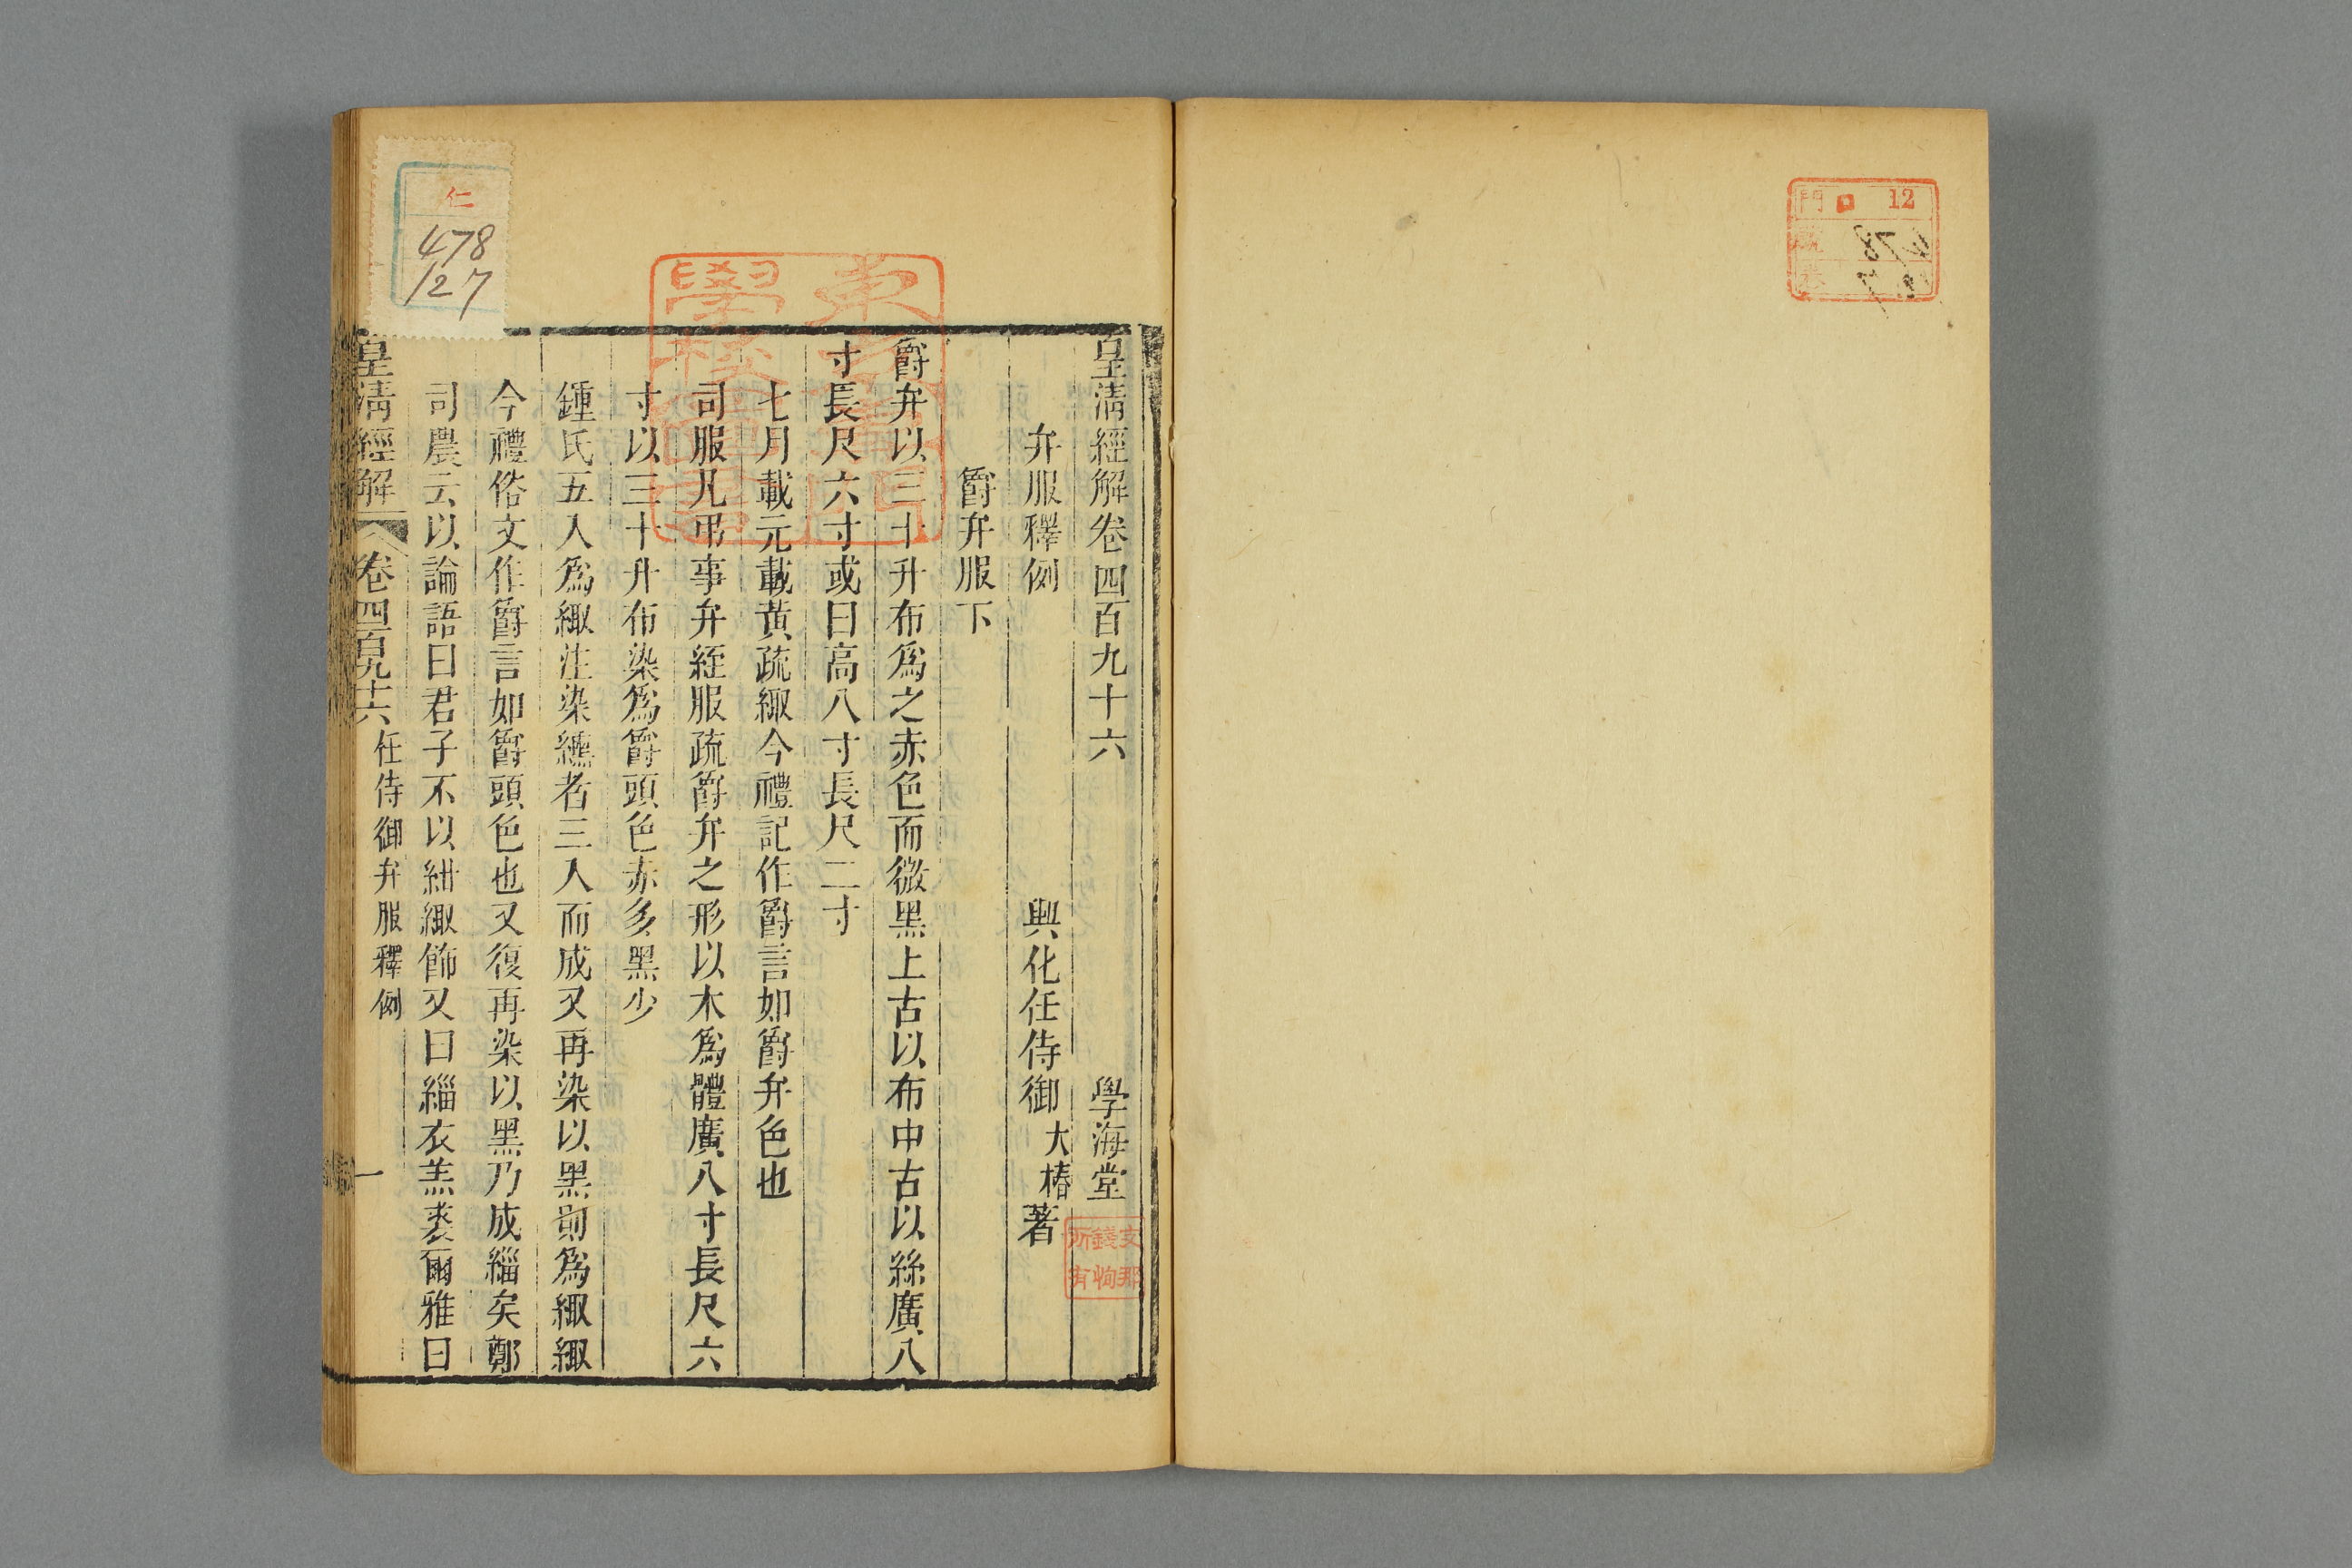 門 12
號 478
卷 127
皇清經解卷四百九十六 學海堂
弁服釋例 興化任侍御大椿著
爵弁服下
爵弁以三十升布爲之赤色而微黑上古以布中古以絲廣八
寸長尺六寸或曰高八寸長尺二寸
七月載元載黃疏緅今禮記作爵言如爵弁色也
司服凡弔事弁絰服疏爵弁之形以木爲體廣八寸長尺六
寸以三十升布染爲爵頭色赤多黑少
鍾氏五入爲緅注染纁者三入而成又再染以黑則爲緅緅
今禮俗文作爵言如爵頭色也又復再染以黑乃成緇矣鄭
司農云以論語曰君子不以紺緅飾又曰緇衣羔裘爾雅曰
皇清經解 卷四百九十六 任侍御弁服釋例 一
仁
478
127